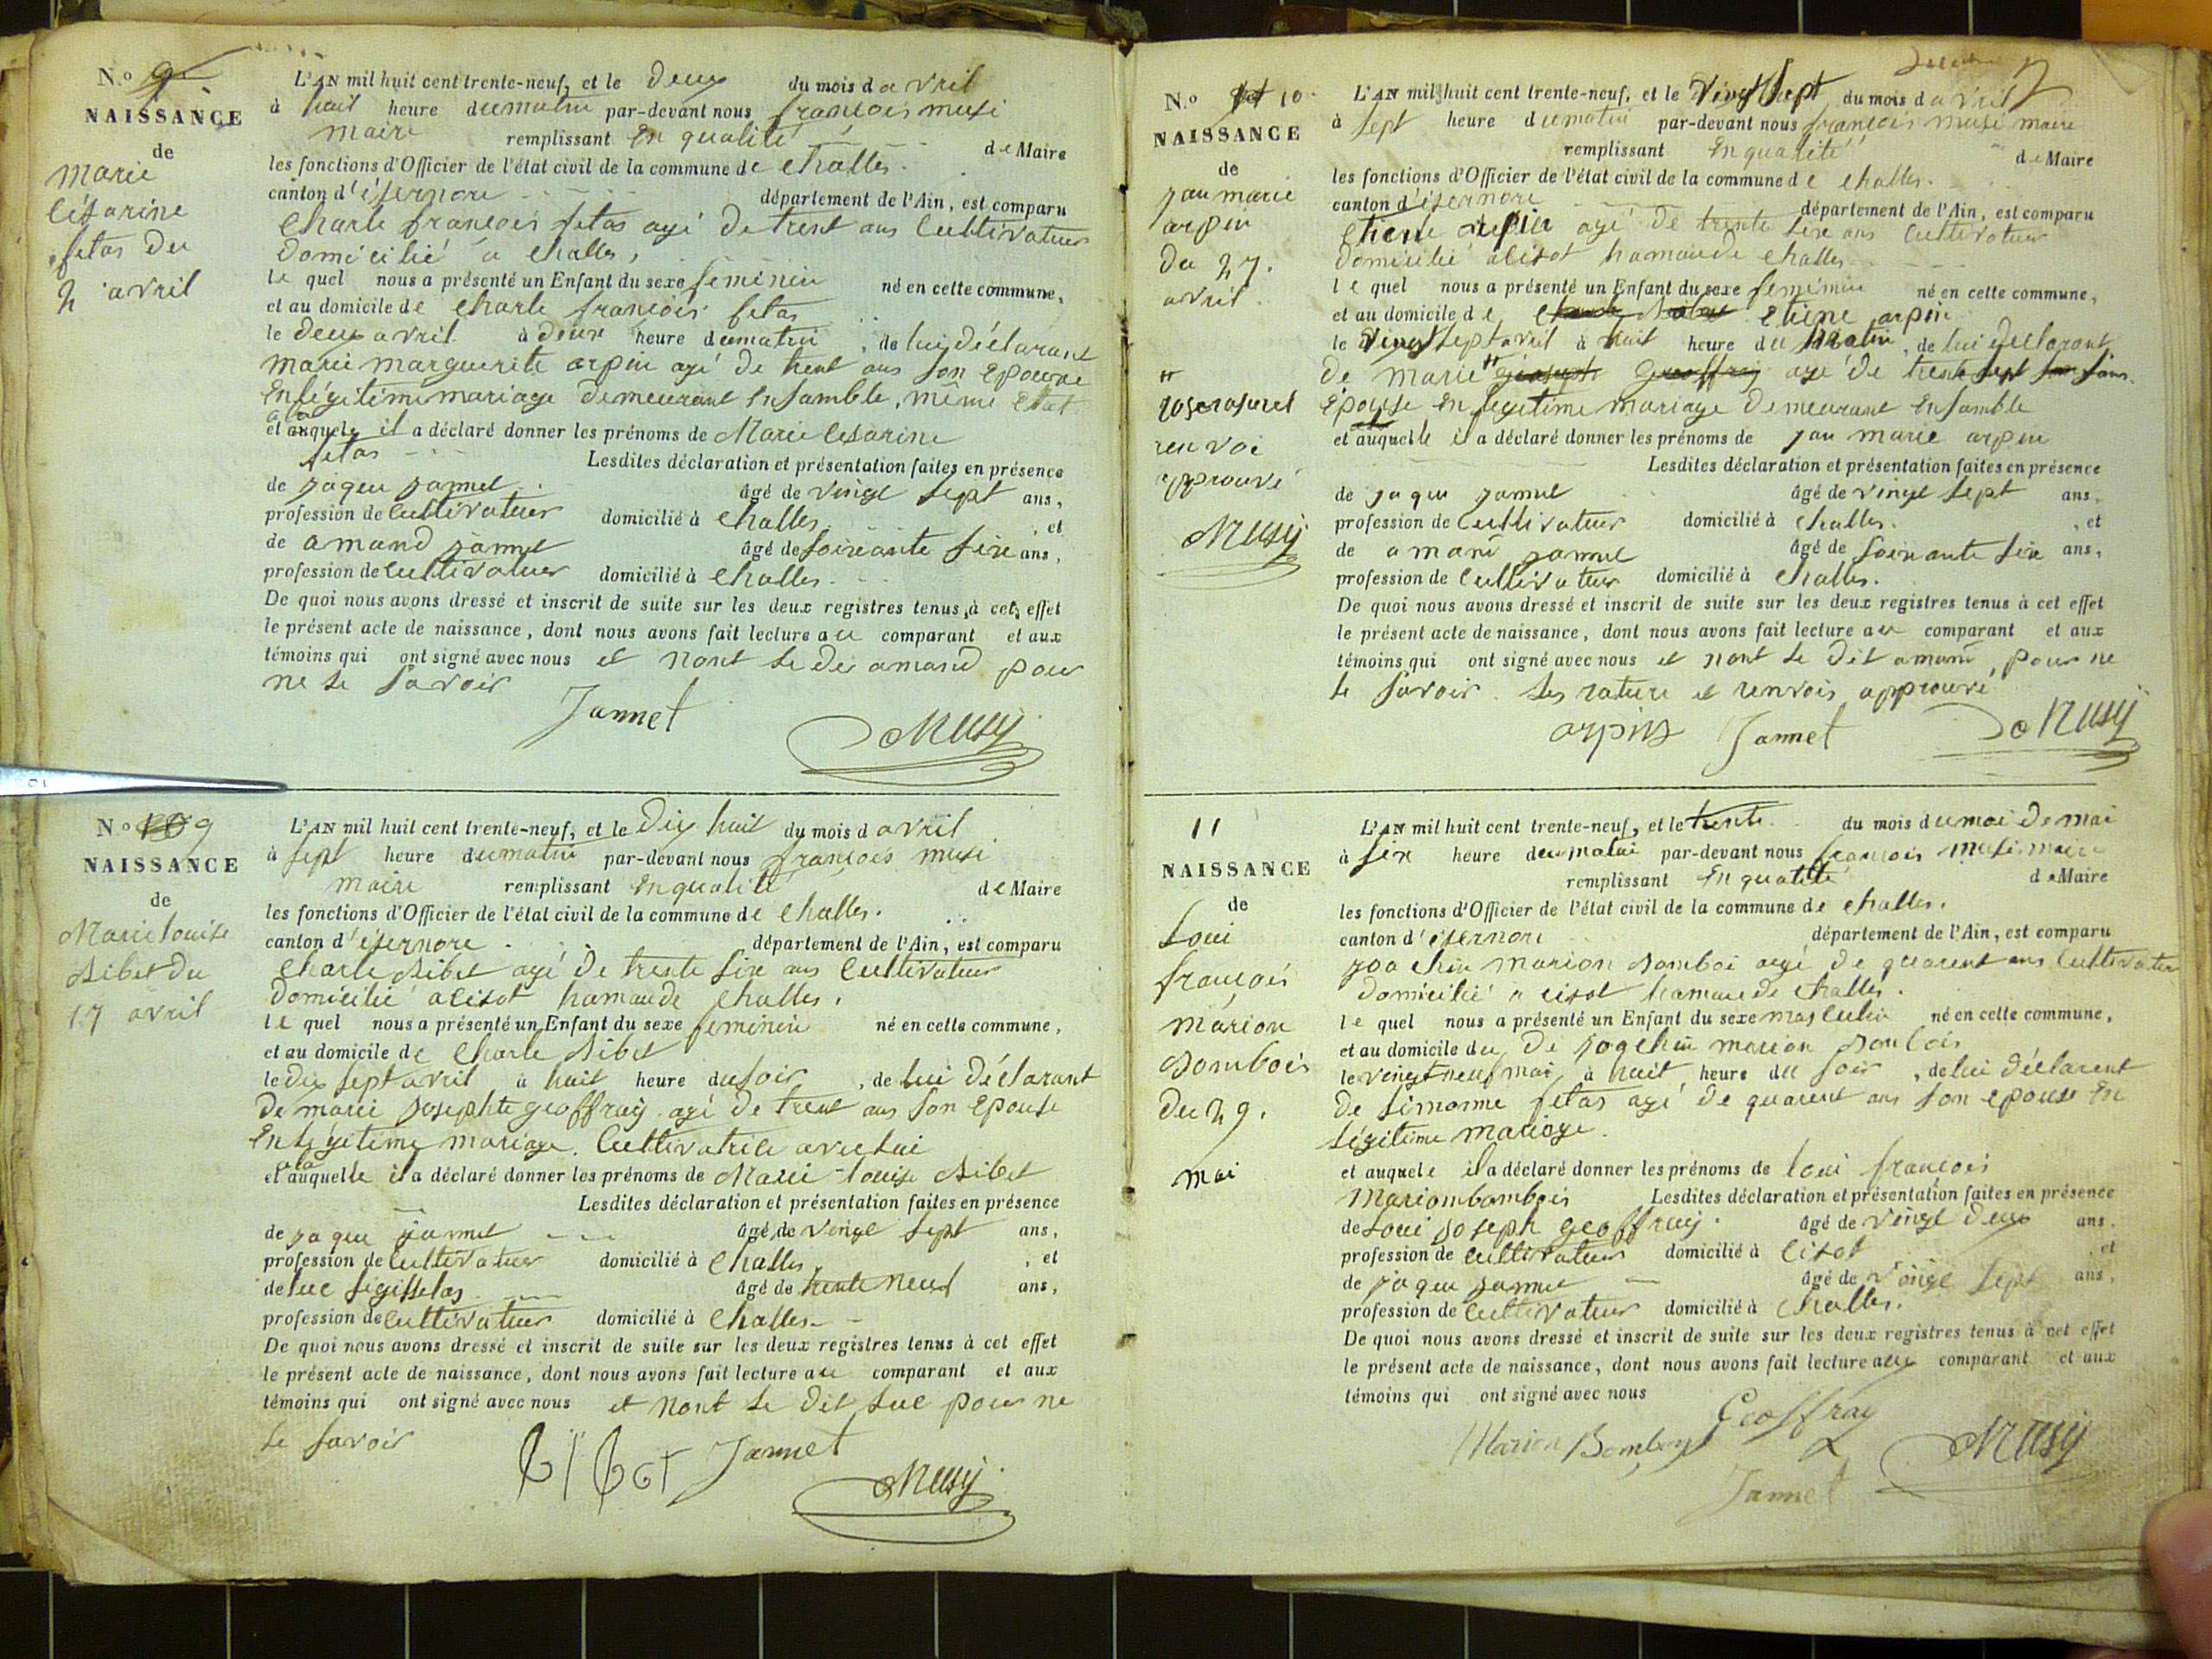 N.o
NAISSANCE
de
Marie
Césarine
fetas du
2 avril
L'AN mil huit cent trente-neuf, et le deux du mois d avril
à huit heure du matin par-devant nous françois musi
maire remplissant En qualité de Maire
les fonctions d'Officier de l'état civil de la commune de Challes.
canton d'isernore département de l'Ain, est comparu
Charle françois fetas agé de trent ans Cultivateur
domicilié a Challes,
le quel nous a présenté un Enfant du sexe feminin né en cette commune,
et au domicile de Charle françois fetas
le deux avril à deux heure du matin, de lui déclarant
marie marguerite arpin agé de trent ans son Epouse
En légitime mariage demeurant Ensamble, même Etat
et auquele il a déclaré donner les prénoms de Marie Cesarine
fetas Lesdites déclaration et présentation faites en présence
de jaque jannet âgé de vingt sept ans,
profession de Cultivateur domicilié à Challes, et
de amand jannet âgé de soixante six ans,
profession de Cultivateur domicilié à Challes.
De quoi nous avons dressé et inscrit de suite sur les deux registres tenus à cet effet
le présent acte de naissance, dont nous avons fait lecture au comparant et aux
témoins qui ont signé avec nous et nont le dit amand pour
ne le savoir
Jannet
Musy
N.o 9
NAISSANCE
de
Marie louise
Sibet du
17 avril
L'AN mil huit cent trente-neuf, et le dix huit du mois d avril
à sept heure du matin par-devant nous françois musi
maire remplissant En qualité de Maire
les fonctions d'Officier de l'état civil de la commune de Challes.
canton d'isernore département de l'Ain, est comparu
Charle Sibet agé de trente six ans Cultivateur
domicilié a cisot hamau de Challes.
le quel nous a présenté un Enfant du sexe feminin né en cette commune,
et au domicile de Charle Sibet
le dix sept avril à huit heure du soir, de lui déclarant
de marie josephte geoffray agé de trent ans son Epouse
En légitime mariage. Cultivatrice avec lui
et auquelle il a déclaré donner les prénoms de Marie louise Sibet
Lesdites déclaration et présentation faites en présence
de jaque jannet âgé de vingt sept ans,
profession de Cultivateur domicilié à Challes, et
de luc âgé de trente neuf ans,
profession de Cultivateur domicilié à Challes
De quoi nous avons dressé et inscrit de suite sur les deux registres tenus à cet effet
le présent acte de naissance, dont nous avons fait lecture au comparant et aux
témoins qui ont signé avec nous et nont le dit luc pour ne
le savoir
Jannet
Musy
N.o 10
NAISSANCE
de
jan marie
arpin
du 27.
avril.
rose
renvoi
approuvé
Musy
L'AN mil huit cent trente-neuf, et le vingt sept du mois d avril
à sept heure du matin par-devant nous françois musi maire
remplissant En qualité de Maire
les fonctions d'Officier de l'état civil de la commune de Challes.
canton d'isernore département de l'Ain, est comparu
Etiene arpin agé de trente six ans Cultivateur
domicilié a cisot hamau de Challes
le quel nous a présenté un Enfant du sexe feminin né en cette commune,
et au domicile de Etiene arpin
le vingt sept avril à huit heure du matin, de lui declarant
de marie agé de trente sept ans.
Epouse En legitime mariage demeurant Ensamble
et auquelle il a déclaré donner les prénoms de jan marie arpin
Lesdites déclaration et présentation faites en présence
de jaque jannet âgé de vingt sept ans,
profession de Cultivateur domicilié à Challes. , et
de amand jannet âgé de soixante six ans,
profession de Cultivateur domicilié à Challes.
De quoi nous avons dressé et inscrit de suite sur les deux registres tenus à cet effet
le présent acte de naissance, dont nous avons fait lecture au comparant et aux
témoins qui ont signé avec nous et nont le dit amand, pour ne
le savoir. les rature et renvois approuvé
arpin Jannet Musy
11
NAISSANCE
de
Loui
françois
marion
Bombois
du 29.
mai
L'AN mil huit cent trente-neuf, et le trente du mois du moi de mai
à six heure du matin par-devant nous françois musi maire
remplissant En qualité de Maire
les fonctions d'Officier de l'état civil de la commune de Challes.
canton d'isernore département de l'Ain, est comparu
joachin marion bomboi agé de quarent ans Cultivateur
domicilié a cisot hamau de Challes.
le quel nous a présenté un Enfant du sexe masculin né en cette commune,
et au domicile du de joachin marion
le vingt neuf mai à huit heure du soir, de lui déclarent
de simonne fetas agé de quarent ans son epouse En
légitime mariage.
et auquele il a déclaré donner les prénoms de loui françois
Marionbombois Lesdites déclaration et présentation faites en présence
de Loui joseph geoffray. âgé de vingt deux ans.
profession de Cultivateur domicilié à Cisot , et
de jaque jannet âgé de vingt sept ans,
profession de Cultivateur domicilié à Challes.
De quoi nous avons dressé et inscrit de suite sur les deux registres tenus à cet effet
le présent acte de naissance, dont nous avons fait lecture au comparant et aux
témoins qui ont signé avec nous
Geoffray
Marion Musy
Jannet